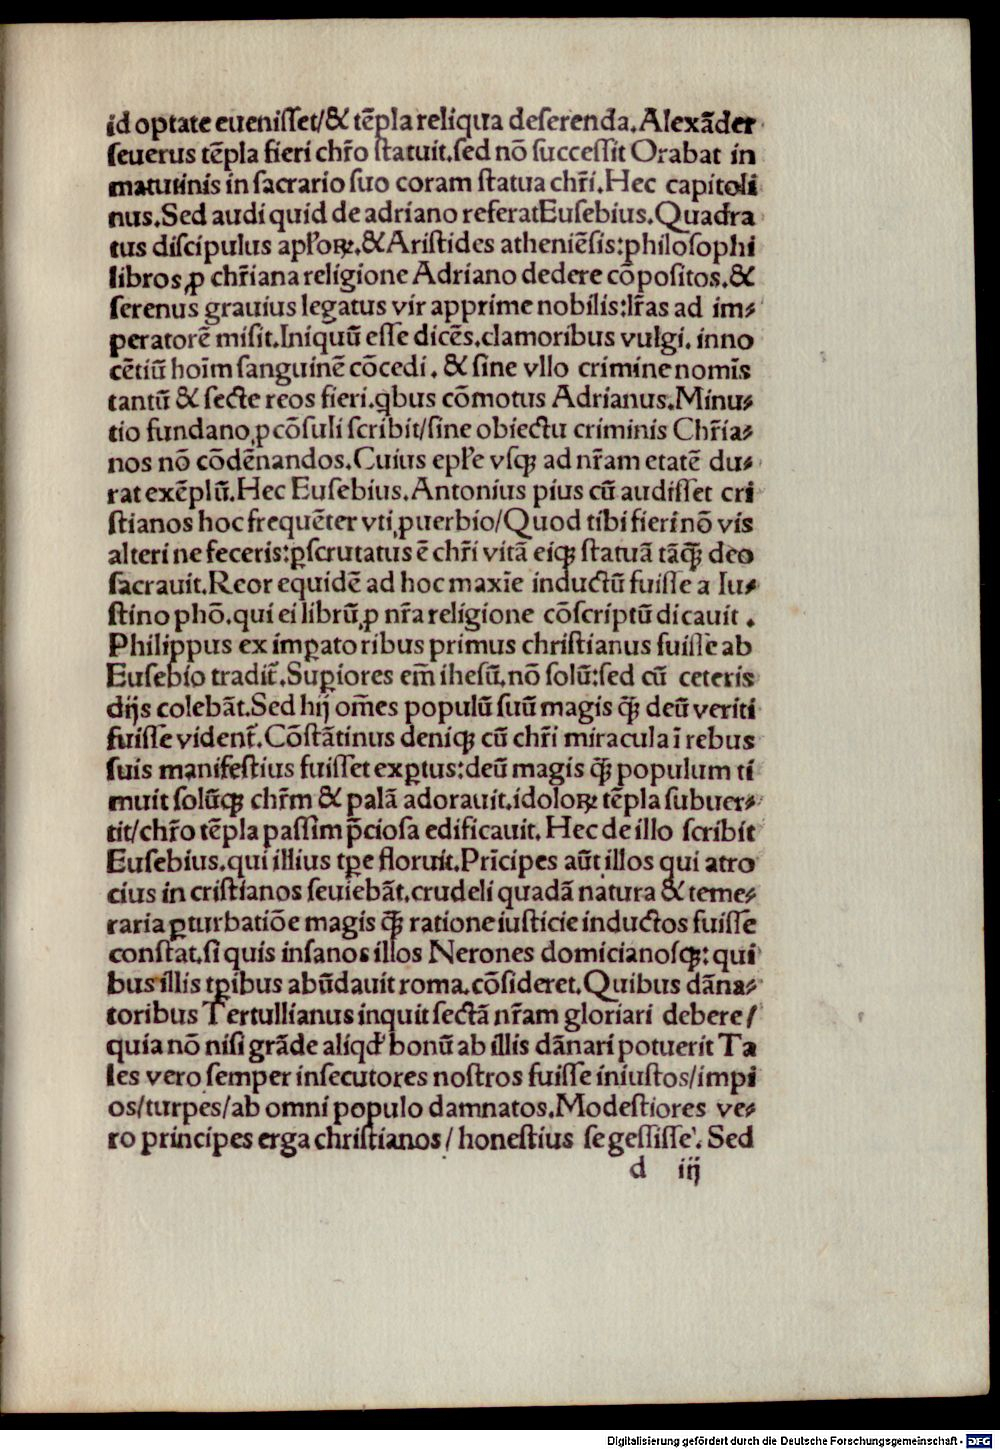 id optate eueniſſet/& tēpla reliqua deſerenda. Alexāder
ſeuerus tēpla fieri chr̄o ſtatuit.ſed nō ſucceſſit Orabat in
matutinis in ſacrario ſuo coram ſtatua chr̄i.Hec capitoli
nus.Sed audi quid de adriano referat Euſebius.Quadra
tus diſcipulus apl'oꝝ.& Ariſtides atheniēſis:philoſophi
libros ꝓ chr̄iana religione Adriano dedere cōpoſitos.&
ſerenus grauius legatus vir apprime nobilis:lr̄as ad im⸗
peratorē miſit.Iniquū eſſe dicēs.clamoribus vulgi. inno
cētiū hoīm ſanguinē cōcedi. & ſine vllo crimine nomīs
tantū & ſecte reos fieri.qbus cōmotus Adrianus.Minu⸗
tio fundano ꝓcōſuli ſcribit/ſine obiectu criminis Chr̄ia⸗
nos nō cōdēnandos.Cuius epl'e vſqꝫ ad nr̄am etatē du⸗
rat exēplū.Hec Euſebius.Antonius pius cū audiſſet cri
ſtianos hoc frequēter vti ꝓuerbio/Quod tibi fieri nō vis
alteri ne feceris:ꝑſcrutatus ē chr̄i vitā eiqꝫ ſtatuā tāqꝫ̄ deo
ſacrauit.Reor equidē ad hoc maxīe inductū fuiſſe a Iu⸗
ſtino phō.qui ei librū ꝓ nr̄a religione cōſcriptū dicauit .
Philippus ex imꝑatoribus primus chriſtianus fuiſſe ab
Euſebio tradit̄.Suꝑiores em̄ iheſū.nō ſolū:ſed cū ceteris
dijs colebāt.Sed hij om̄es populū ſuū magis qꝫ̄ deū veriti
fuiſſe vident̄.Cōſtātinus deniqꝫ cū chr̄i miracula ī rebus
ſuis manifeſtius fuiſſet exꝑtus:deū magis qꝫ̄ populum ti
muit ſolūqꝫ chr̄m & palā adorauit.idoloꝝ tēpla ſubuer⸗
tit/chr̄o tēpla paſſim p̄cioſa edificauit. Hec de illo ſcribit
Euſebius.qui illius tꝑe floruit.Prīcipes aūt illos qui atro
cius in criſtianos ſeuiebāt.crudeli quadā natura & teme⸗
raria ꝑturbatiōe magis qꝫ̄ ratione iuſticie inductos fuiſſe
conſtat.ſi quis inſanos illos Nerones domicianoſqꝫ:qui
bus illis tꝑibus abūdauit roma.cōſideret.Quibus dāna⸗
toribus Tertullianus inquit ſectā nr̄am gloriari debere/
quia nō niſi grāde aliqd' bonū ab illis dānari potuerit Ta
les vero ſemper inſecutores noſtros fuiſſe iniuſtos/impi
os/turpes/ab omni populo damnatos.Modeſtiores ve⸗
ro principes erga chriſtianos/ honeſtius ſe geſſiſſe'. Sed
d iij
Digitalisierung gefördert durch die Deutsche Forschungsgemeinschaft - DFG